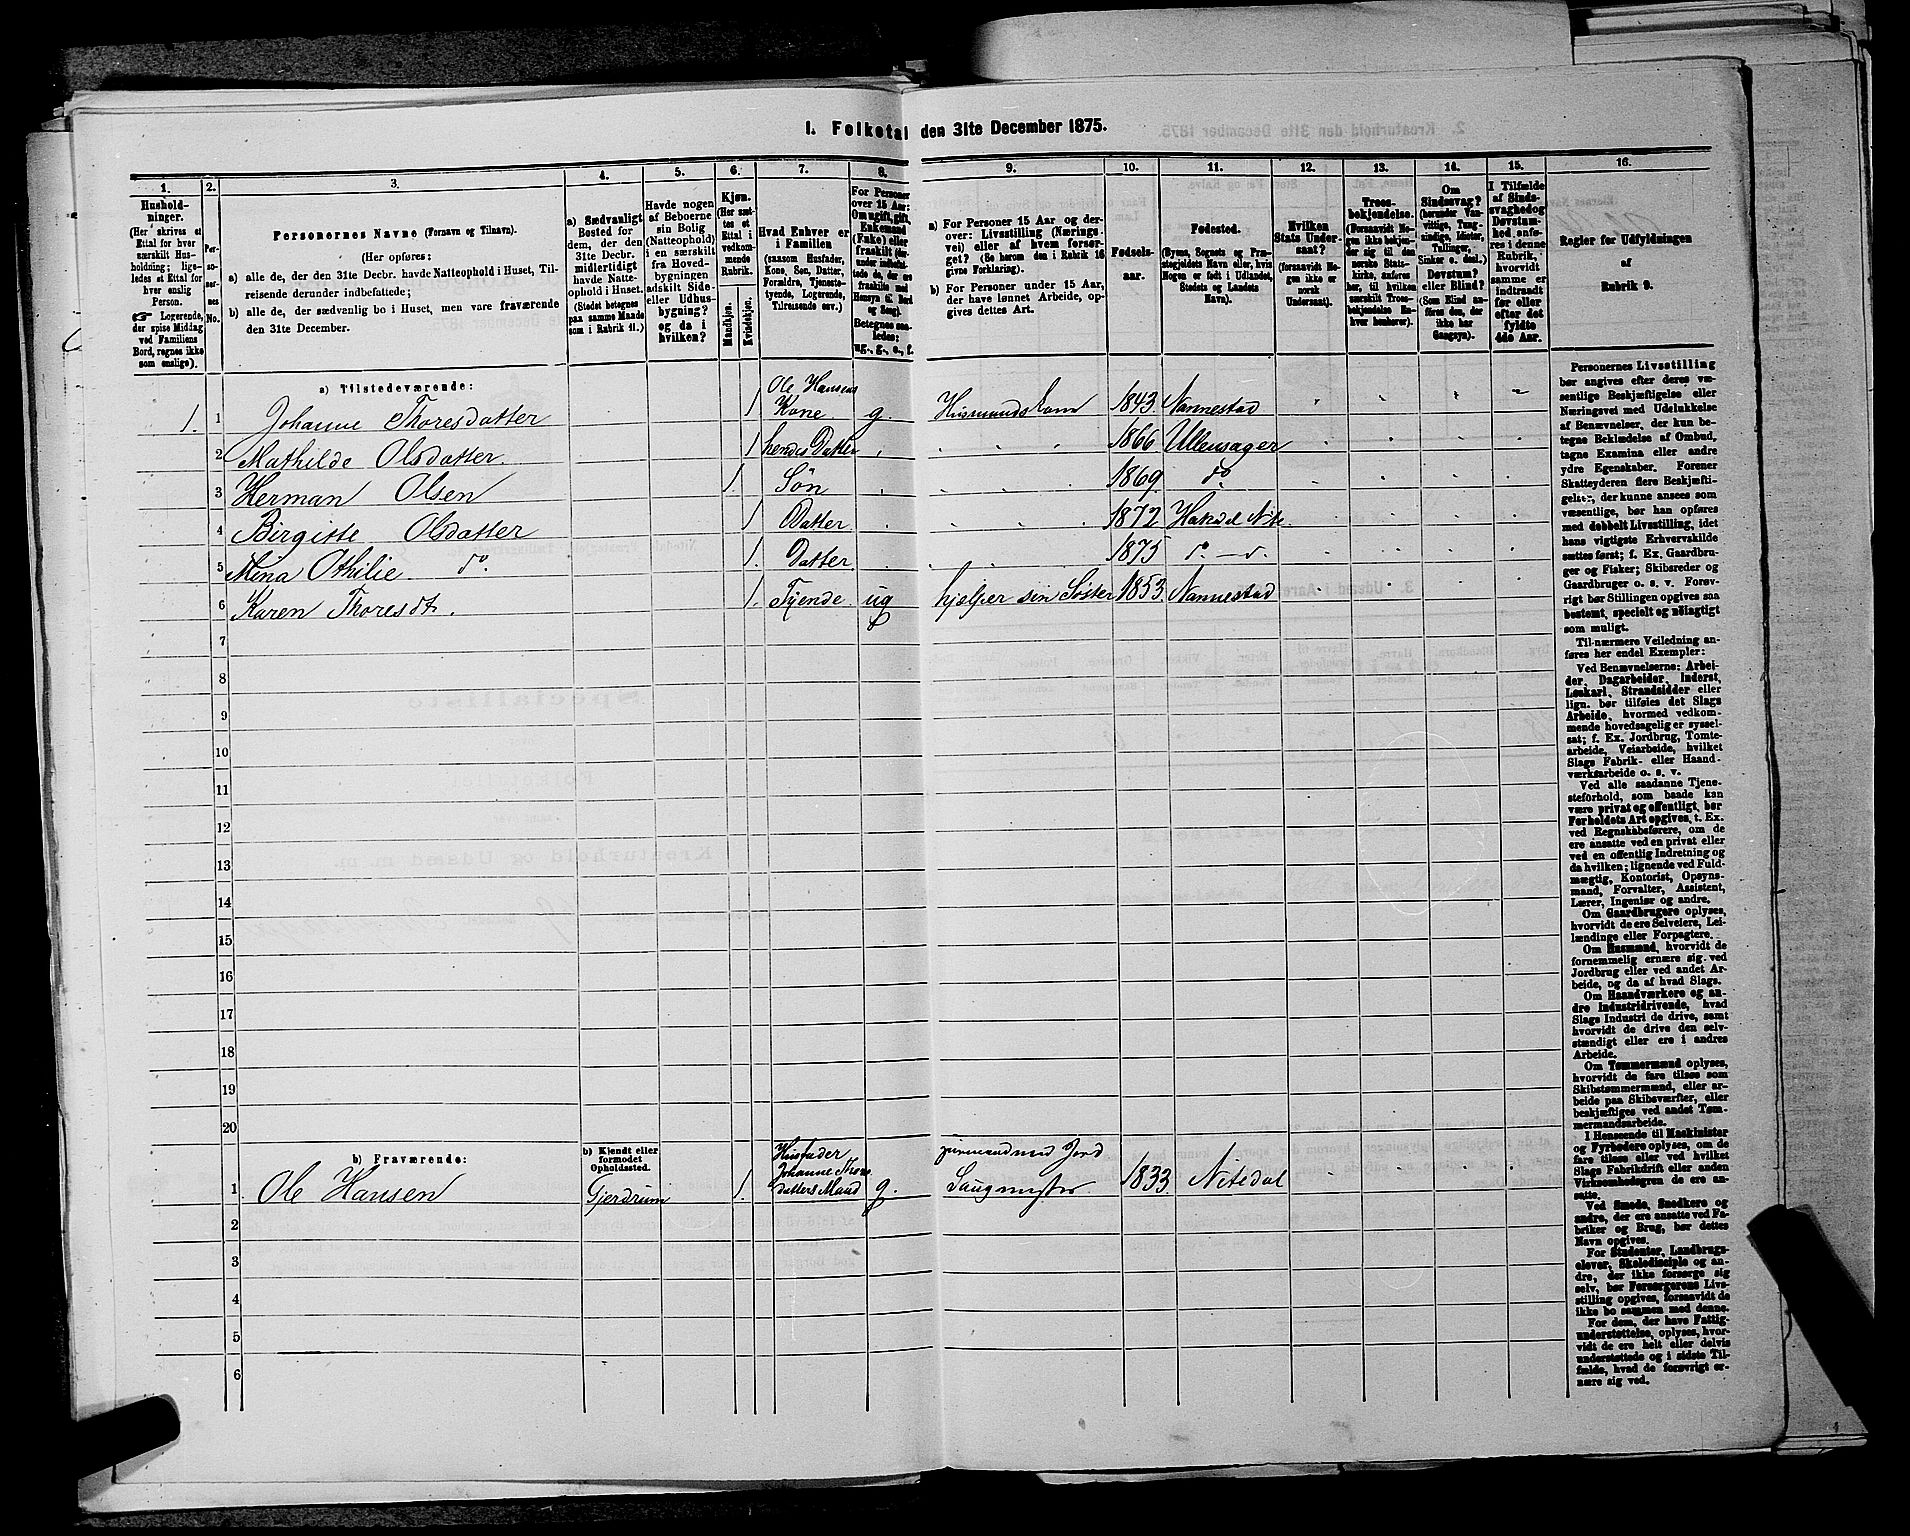 I. Folketal den 31te December 1875.
1. 2. 3. 4. 5. 6. 7. 8. 9. 10. 11. 12. 13. 14. 15. 16.
Hushold-
ninger.
(Her skrives et
Ettal for hver
særskilt Hus-
holdning; lige-
ledes et Ettal for
hver enslig
Person.
☞ Logerende,
der spise Middag
ved Familiens
Bord, regnes ikke
som enslige).
Per-
so-
ner-
nes
No.
Personernes Navne (Fornavn og Tilnavn).
(Her opføres:
a) alle de, der den 31te Decbr. havde Natteophold i Huset, Til-
reisende derunder indbefattede;
b) alle de, der sædvanlig bo i Huset, men vare fraværende
den 31te December.
a) Sædvanligt
Bosted for
dem, der den
31te Decbr.
midlertidigt
havde Natte-
ophold i Huset.
(Stedet betegnes
paa samme Maade
som i Rubrik 11.)
Havde nogen
af Beboerne
sin Bolig
(Natteophold)
i en særskilt
fra Hoved-
bygningen
adskilt Side-
eller Udhus-
bygning?
og da i
hvilken?
Kjøn.
(Her sæt-
tes et
Ettal i
vedkom-
mende
Rubrik.
Mandkjøn.
Kvindekjøn.
Hvad Enhver er
i Familien
(saasom Husfader,
Kone, Søn, Datter,
Forældre, Tjeneste-
tyende, Logerende,
Tilreisende osv.)
For Personer
over 15 Aar:
Om ugift, gift,
Enkemand
(Enke) eller
fraskilt
Betegnes saa-
ledes:
ug., g., e., f.
a) For Personer 15 Aar og der-
over: Livsstilling (Nærings-
vei) eller af hvem forsør-
get? (Se herom den i Rubrik 16
givne Forklaring).
b) For Personer under 15 Aar,
der have lønnet Arbeide, op-
gives dettes Art.
Fødsels-
aar.
Fødested.
(Byens, Sognets og Præ-
stegjeldets Navn eller, hvis
Nogen er født i Udlandet,
Stedets og Landets
Navn).
Hvilken
Stats Under-
saat?
(forsaavidt No-
gen ikke er
norsk
Undersaat).
Troes-
bekjendelse.
(Forsaavidt No-
gen ikke bekjen-
der sig til den
norske Stats-
kirke, anføres
her, til hvilken
særskilt Troes-
bekjendelse En-
hver henhører).
Om
Sindssvag?
(herunder Van-
vittige, Tung-
sindige, Idioter,
Tullinger,
Sinker o. desl.)
Døvstum?
eller Blind?
(Som Blind an-
føres den, der
ikke har
Gangsyn).
I Tilfælde
af Sinds-
svaghed og
Døvstum-
hed, anfø-
res i denne
Rubrik,
hvorvidt
samme er
indtraadt
før eller
efter det
fyldte
4de Aar.
Regler for Udfyldningen
af
Rubrik 9.
a) Tilstedeværende:
1. 1 Johanne Thoresdatter 1 Ole Hansens Kone g. Husmandskone 1843. Nannestad
2 Mathilde Olsdatter. 1 hendes Datter 1866 Ullensager
3 Herman Olsen 1. Søn 1869. do
4 Birgitte Olsdatter 1 Datter 1872. Hakdal Nite.
5 Mina Othilie. do. 1. Datter. 1875 do. — do.
6 Karen Thoresdt. 1. Tyende ug hjælper sin Søster 1853. Nannestad
7
8
9
10
11
12
13
14
15
16
17
18
19
20
b) Fraværende:
b) Kjendt eller
formodet
Opholdssted.
1 Ole Hansen Gjerdrum 1. Husfader Johanne Thores datters Mand g. med Jord Saugmester 1833. Nitedal
2
3
4
5
6
Personernes Livsstilling
bør angives efter deres væ-
sentlige Beskjæftigelse eller
Næringsvei med Udelukkelse
af Benævnelser, der kun be-
tegne Beklædelse af Ombud,
tagne Examina eller andre
ydre Egenskaber. Forener
Skatteyderen flere Beskjæfti-
gelser, der kunne ansees som
væsentlige, bør han opføres
med dobbelt Livsstilling, idet
hans vigtigste Erhvervskilde
sættes først; f. Ex. Gaardbru-
ger og Fisker; Skibsreder og
Gaardbruger o. s. v. Forøv-
rigt bør Stillingen opgives saa
bestemt, specielt og nøiagtigt
som muligt.
Til nærmere Veiledning an-
føres her endel Exempler:
Ved Benævnelserne: Arbei-
der, Dagarbeider, Inderst,
Løskarl, Strandsidder eller
lign. bør tilføies det Slags
Arbeide, hvormed vedkom-
mende hovedsagelig er syssel-
sat; f. Ex. Jordbrug, Tomte-
arbeide, Veiarbeide, hvilket
Slags Fabrik- eller Haand-
værksarbeide o. s. v.
Ved alle saadanne Tjene-
steforhold, som baade kan
være privat og offentligt, bør
Forholdets Art opgives, t. Ex.
ved Regnskabsførere, om de
ere ansatte ved en privat eller
ved en offentlig Indretning og
da hvilken; lignende ved Fuld-
mægtig, Kontorist, Opsyns-
mand, Forvalter, Assistent,
Lærer, Ingeniør og andre.
Om Gaardbrugere oplyses,
hvorvidt de ere Selveiere, Lei-
lændinge eller Forpagtere.
Om Husmænd, hvorvidt de
fornemmelig ernære sig ved
Jordbrug eller ved andet Ar-
beide, og da af hvad Slags.
Om Haandværkere og an-
dre Industridrivende, hvad
Slags Industri de drive, samt
hvorvidt de drive den selv-
stændigt eller ere i andres
Arbeide.
Om Tømmermænd oplyses,
hvorvidt de fare tilsøs som
Skibstømmermænd, eller ar-
beide paa Skibsværfter, eller
beskjæftiges ved andet Tøm-
mermandsarbeide.
I Henseende til Maskinister
og Fyrbødere oplyses, om de
fare tilsøs eller ved hvilket
Slags Fabrikdrift eller anden
Virksomhedsgren de ere an-
satte.
Ved Smede, Snedkere og
andre, der ere ansatte ved Fa-
briker og Brug, bør dettes
Navn opgives.
For Studenter, Landbrugs-
elever, Skoledisciple og an-
dre, der ikke forsørge sig
selv, bør Forsørgerens Livs-
stilling opgives, forsaavidt de
ikke bo sammen med denne.
For dem, der have Fattig-
understøttelse, oplyses, hvor-
vidt de ere helt eller delvis
understøttede og i sidste Til-
fælde, hvad de forøvrigt er-
nære sig ved.